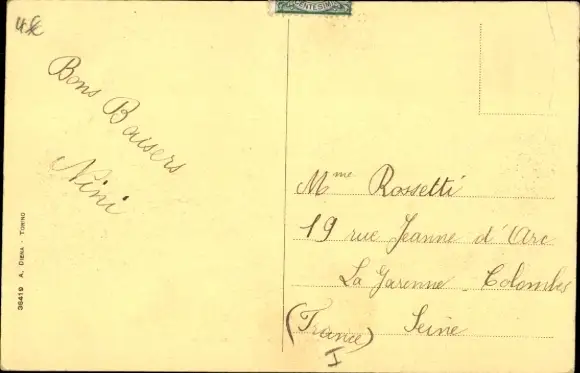 CENTESIMI
Bons Baisers
Nini
Mme Rossetti
19 rue Jeanne d'Arc
La Garenne - Colombes
Seine
(France)
I
36419 A. DIENA - TORINO